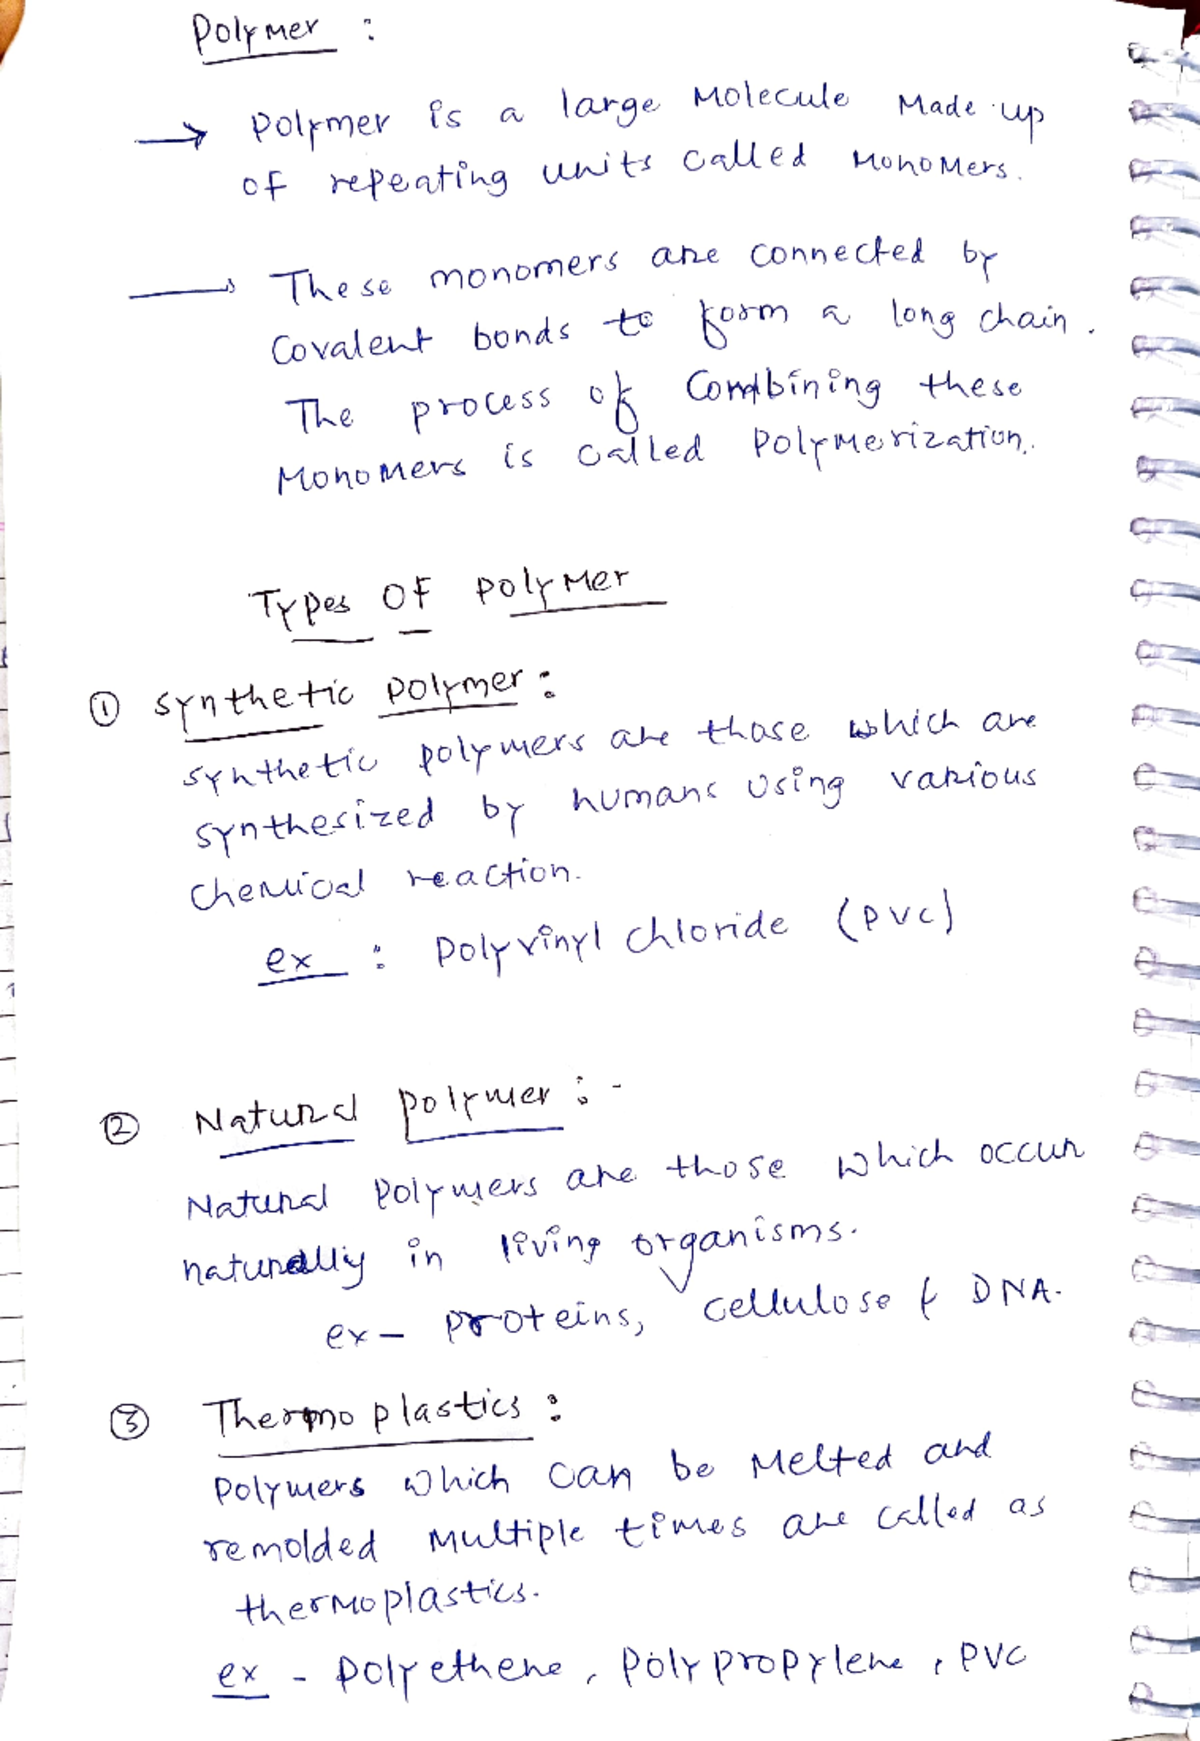 Polymer :
→ Polymer is a large Molecule Made up
of repeating units called Monomers.
→ These monomers are connected by
Covalent bonds to form a long chain.
The process of Combining these
Monomers is called Polymerization.
Types OF Polymer
① Synthetic Polymer :
Synthetic polymers are those which are
synthesized by humans using various
Chemical reaction.
ex : Polyvinyl chloride (PVC)
② Natural Polymer : -
Natural Polymers are those which occur
naturally in living organisms.
ex - Proteins, cellulose & DNA.
③ Thermoplastics :
Polymers which can be Melted and
remolded Multiple times are called as
thermoplastics.
ex - Polyethene, Polypropylene, PVC